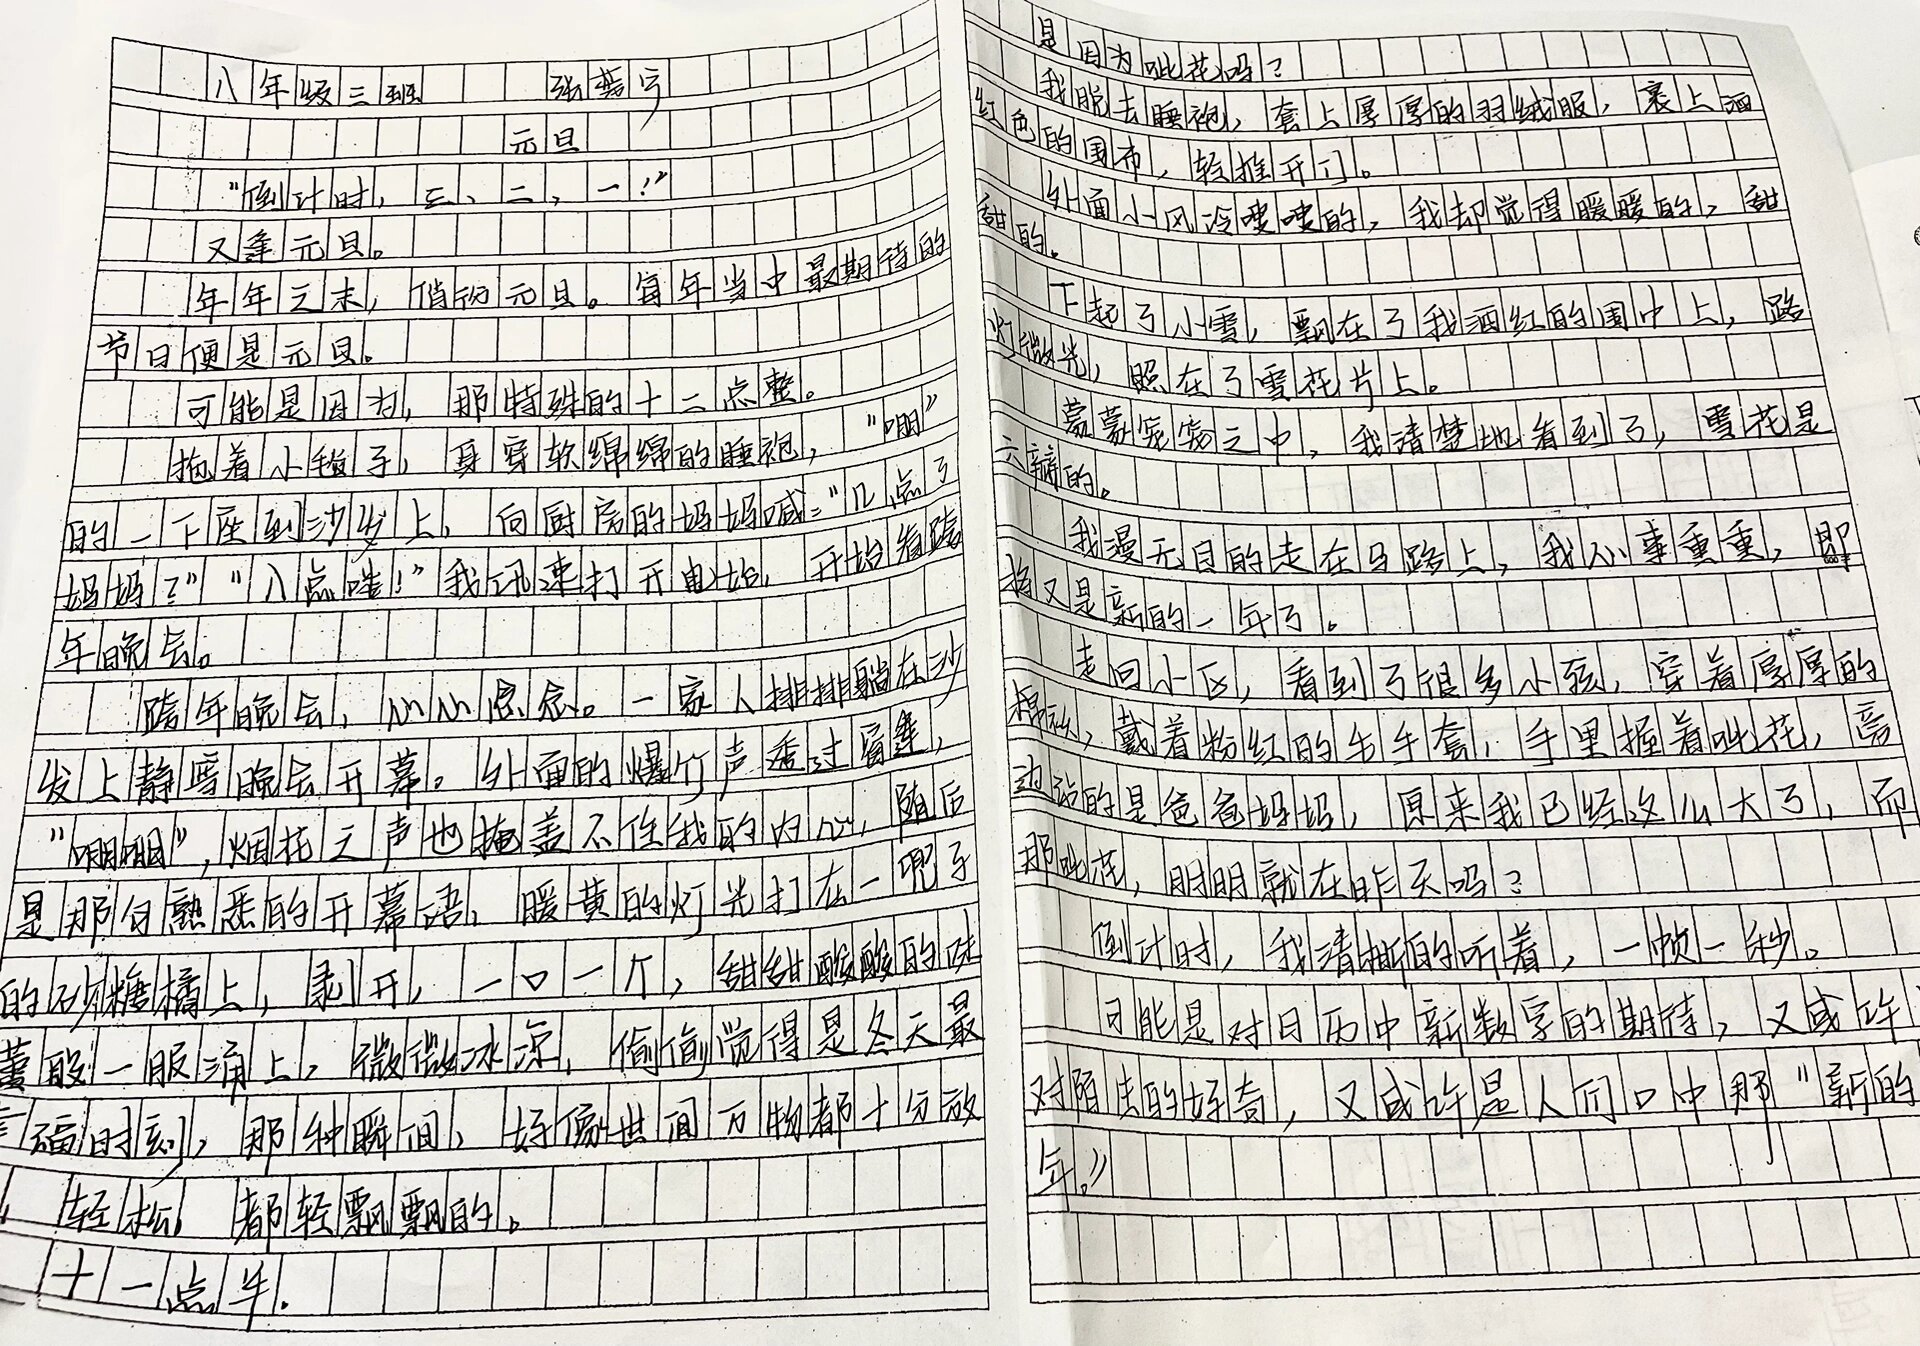 八年级三班 张
元旦
“倒计时，三、二、一！”
又逢元旦。
年年之末，俏盼元旦。每年当中最期待的
节日便是元旦。
可能是因为，那特殊的十二点整。
抱着小毯子，身穿软绵绵的睡袍，“嘣”
的一下座到沙发上，向厨房的妈妈喊：“几点了
妈妈？”“八点哇！”我讯速打开电始，开始看跨
年晚会。
跨年晚会，心心念念。一家人排排躺在沙
发上静等晚会开幕。外面的爆竹声透过窗缝，
“嘣嘣”，烟花之声也掩盖不住我的内心，随后
是那句熟悉的开幕语，暖黄的灯光打在一兜子
的砂糖橘上，剥开，一口一个，甜甜酸酸的味
蕾般一股涌上，微微冰凉，偷偷觉得是冬天最
福时刻，那种瞬间，好像世间万物都十分放
轻松，都轻飘飘的。
十一点半.
是因为呲花吗？
我脱去睡袍，套上厚厚的羽绒服，裹上酒
红色的围布，轻推开门。
外面小风冷嗖嗖的，我却觉得暖暖的，甜
甜的。
下起了小雪，飘在了我酒红的围巾上，路
灯微光，照在了雪花片上。
蒙蒙宠宠之中，我清楚地看到了，雪花是
六瓣的。
我漫无目的走在马路上，我心事重重，即
将又是新的一年了。
走回小区，看到了很多小孩，穿着厚厚的
棉袄，戴着粉红的毛手套，手里握着呲花，旁
边站的是爸爸妈妈，原来我已经这么大了，而
那呲花，明明就在昨天吗？
倒计时，我清晰的听着，一帧一秒。
可能是对日历中新数字的期待，又或许
对陌生的好奇，又或许是人们口中那“新的
年。”